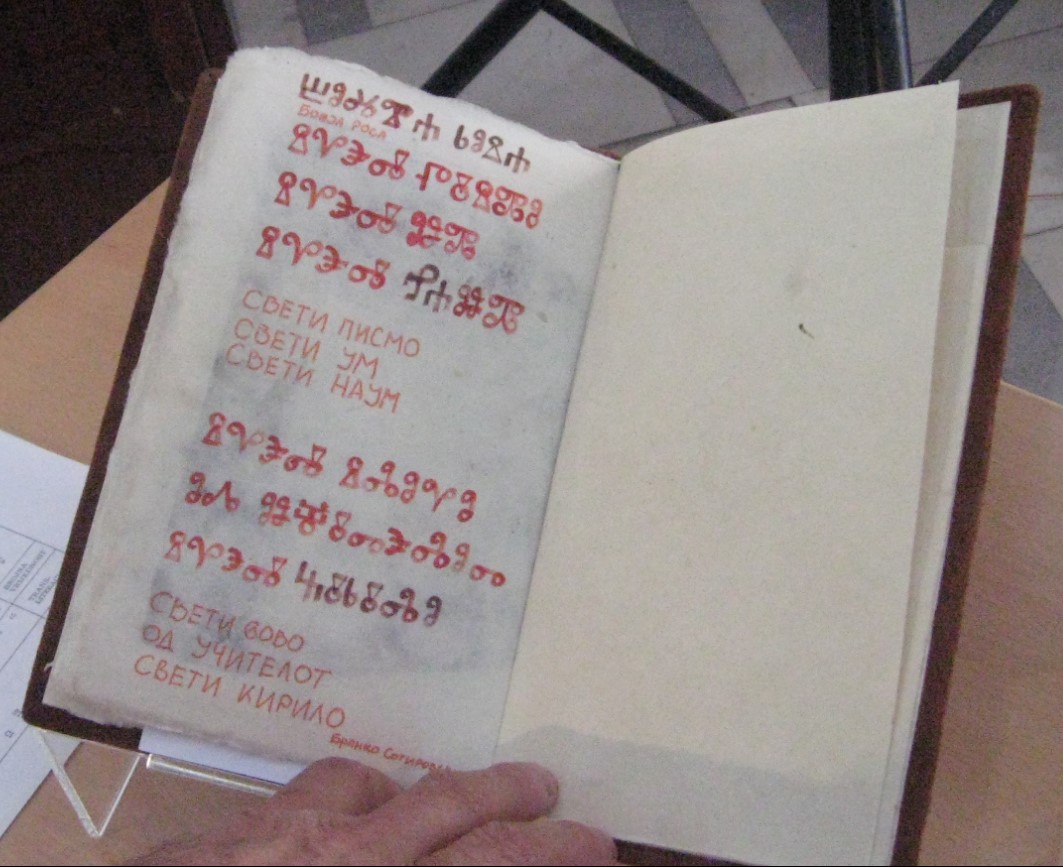 ⱃⱁⱄⰰ
Божја роса
ⱄⰲⰵⱅⰹ ⱂⰹⱄⰿⱁ
ⱄⰲⰵⱅⰹ ⱆⰿ
ⱄⰲⰵⱅⰹ ⱀⰰⱆⰿ
СВЕТИ ПИСМО
СВЕТИ УМ
СВЕТИ НАУМ
ⱄⰲⰵⱅⰹ ⱄⰾⱁⰲⱁ
ⱁⰴ ⱆⱍⰹⱅⰵⰾⱁⱅ
ⱄⰲⰵⱅⰹ ⰽⰹⱃⰹⰾⱁ
СВЕТИ
ОД УЧИТЕЛОТ
СВЕТИ КИРИЛО
Бранко